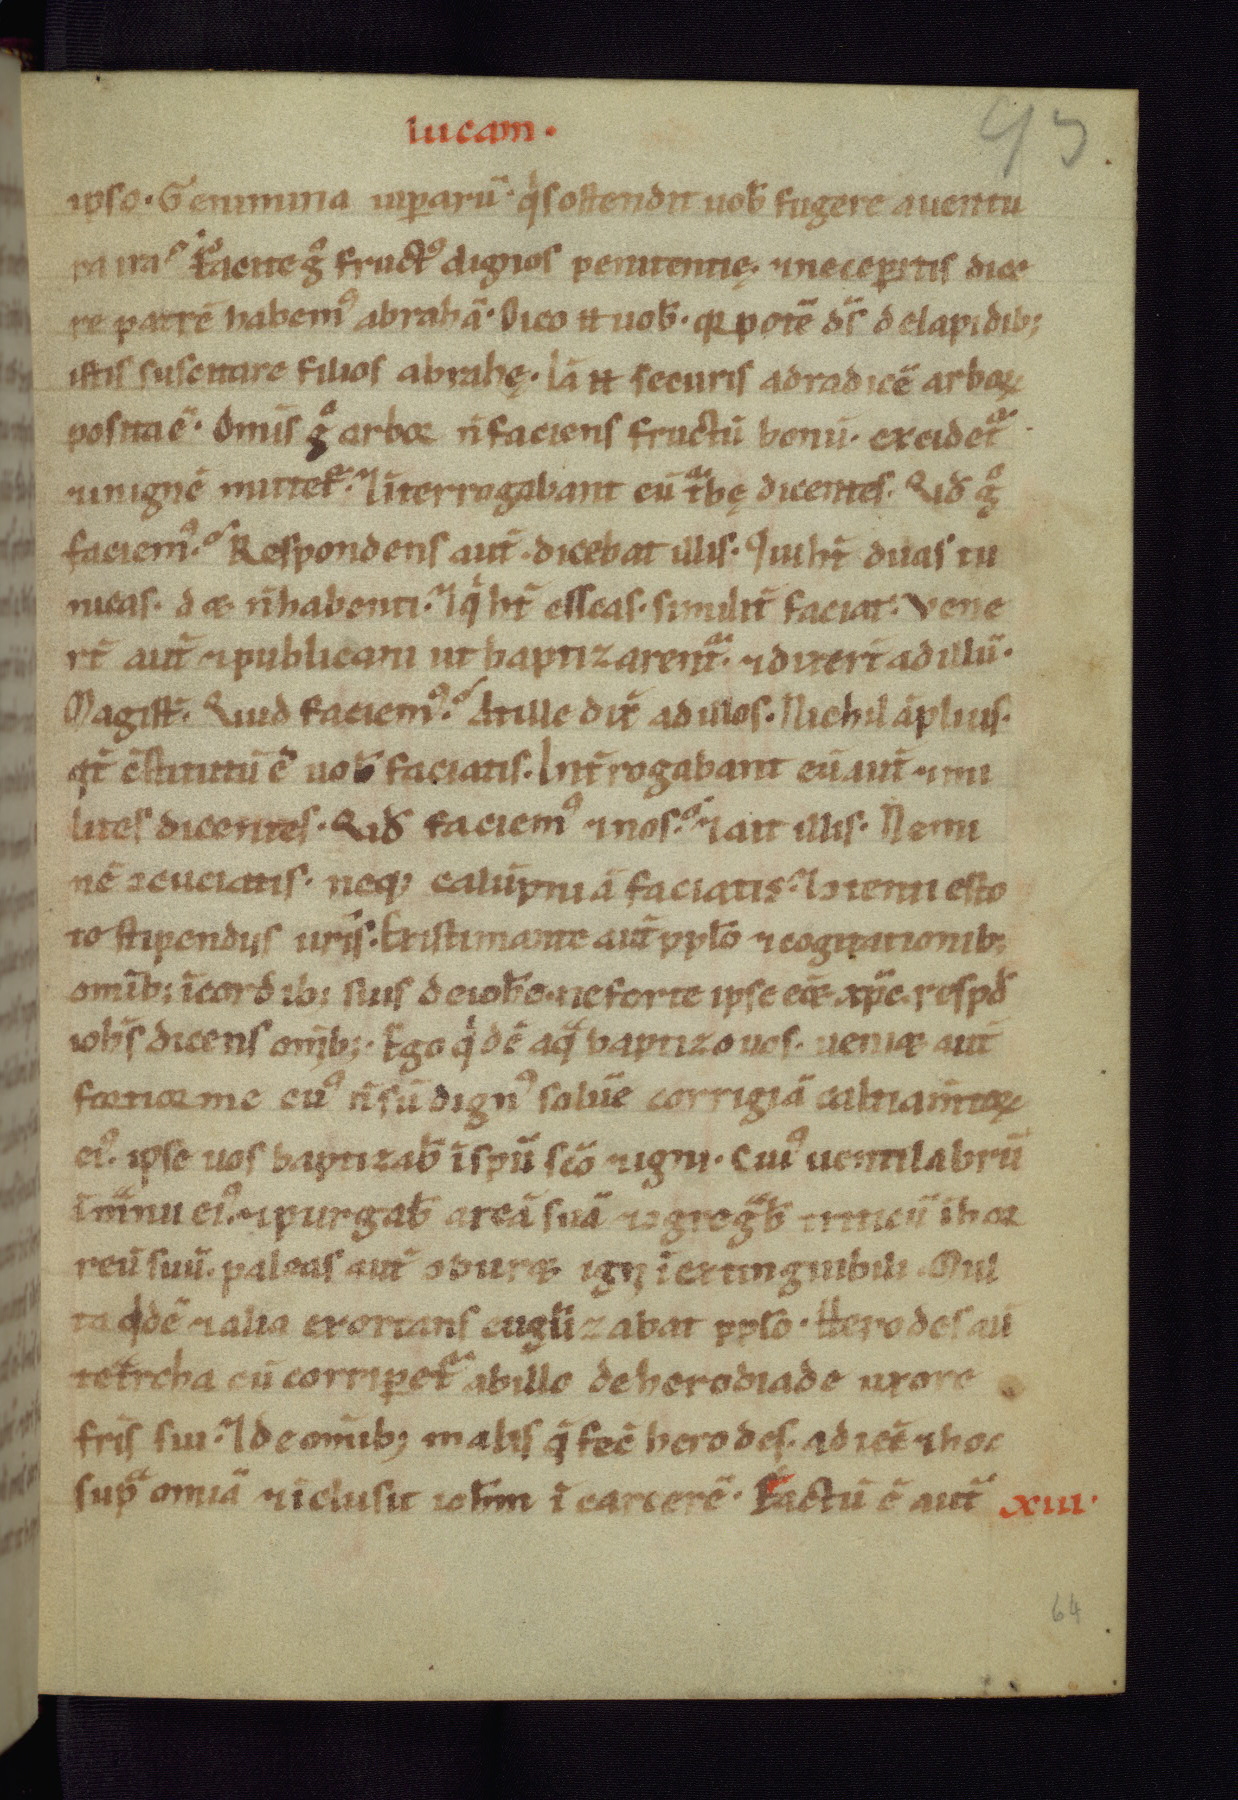 lucam.
93
ipso. Genimina uiparū. qͥs ostendit uob̄ fugere auentu
ra ira? Facite gͦ fructꝰ dignos penitentię. ⁊ne ceperitis dice
re patrē habemꝰ abrahā. Dico ū uob̄. qꝛ potē ds̄ delapidib;
istis suscitare filios abrahę. Iā ū securis adradicē arboꝝ
posita ē. Om̄is gͦ arbor n̄ faciens fructū bonū. excidet᷑
⁊inignē mittet᷑. ⁊ interrogabant eū t᷑bę dicentes. Qͥd gͦ
faciemꝰ? Respondens aut̄. dicebat illis. Qui ht̄ duas tu
nicas. det n̄ habenti. ⁊ qͥ ht̄ esscas. similit̄ faciat. Vene
rt̄ aut̄ ⁊publicani ut baptizarent᷑. ⁊dixert̄ adillū.
Magist̄. Quid faciemꝰ? At ille dix̄ adillos. Nichil āplius.
qͣ cs̄titutū ē uob̄ faciatis. Int̄rogabant eū aut̄ ⁊mi
lites dicentes. Qͥd faciemꝰ ⁊nos? ⁊ait illis. Nemi
nē ꝯcuciatis. neq; calūpniā faciatis. ⁊ ꝯtenti esto
te stipendiis uris̄. Existimante aut̄ pplo̅ ⁊cogitationib;
omīb; ī cordib; suis deioh̄e. ne forte ipse eēt xp̄c. respd̄
ioh̄s dicens om̄ib;. Ego qͥdē aqͣ baptizo uos. ueniet aut̄
fortior me cuꝰ n̄ sū dignꝰ solūe corrigiā caltiam̄toꝝ
eiꝰ. ipse uos baptizab̄ ī spū sc̄o ⁊igni. Cuiꝰ uentilabrū
ī manu eiꝰ. ⁊purgab̄ areā suā ⁊ꝯgregab̄ triticū ī hor
reū suū. paleas aut̄ ꝯburet igni īextinguibili. Mul
ta qͥdē ⁊alia exortans eugl̄izabat pplo̅. Herodes aū
tet̄rcha cū corriperet᷑ abillo deherodiade uxore
fris̄ sui. ⁊ deomīb; malis q̄ fec̄ herodes. adiec̄ ⁊hoc
supͣ omiā ⁊īclusit ioh̄m ī carcerē. Factū ē aut̄ xiii.
64